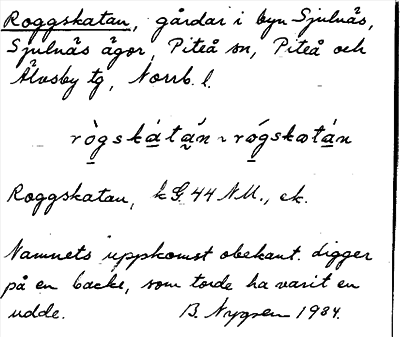 Roggskatan, gårdar i byn Sjulnäs,
Sjulnäs ägor, Piteå sn, Piteå och
Älvsby tg, Norrb. l.
rògskátán ~ rógskatán
Roggskatan, k G. 44 NM., ek.
Namnets uppkomst obekant. Ligger
på en backe, som torde ha varit en
udde. B. Nygren 1984.